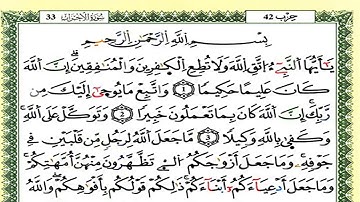 حزب 42
سورة الأحزاب 33
بِسْمِ اِللَّهِ اِلرَّحْمَٰنِ اِلرَّحِيمِ
يَٰٓأَيُّهَا اَلنَّبِيٓءُ اُتَّقِ اِللَّهَ وَلَا تُطِعِ اِلْكَٰفِرِينَ وَالْمُنَٰفِقِينَ إِنَّ اَللَّهَ
كَانَ عَلِيمًا حَكِيمًا ١ وَاتَّبِعْ مَا يُوحَىٰٓ إِلَيْكَ مِن
رَّبِّكَ إِنَّ اَللَّهَ كَانَ بِمَا تَعْمَلُونَ خَبِيرًا ٢ وَتَوَكَّلْ عَلَى اَللَّهِ
وَكَفَىٰ بِاللَّهِ وَكِيلًا ٣ مَّا جَعَلَ اَللَّهُ لِرَجُلٍ مِّن قَلْبَيْنِ فِي
جَوْفِهِۦ وَمَا جَعَلَ أَزْوَٰجَكُمُ اُلَّٰٓـِٔي تَظَّهَّرُونَ مِنْهُنَّ أُمَّهَٰتِكُمْ
وَمَا جَعَلَ أَدْعِيَآءَكُمْ أَبْنَآءَكُمْ ذَٰلِكُمْ قَوْلُكُم بِأَفْوَٰهِكُمْ وَاللَّهُ